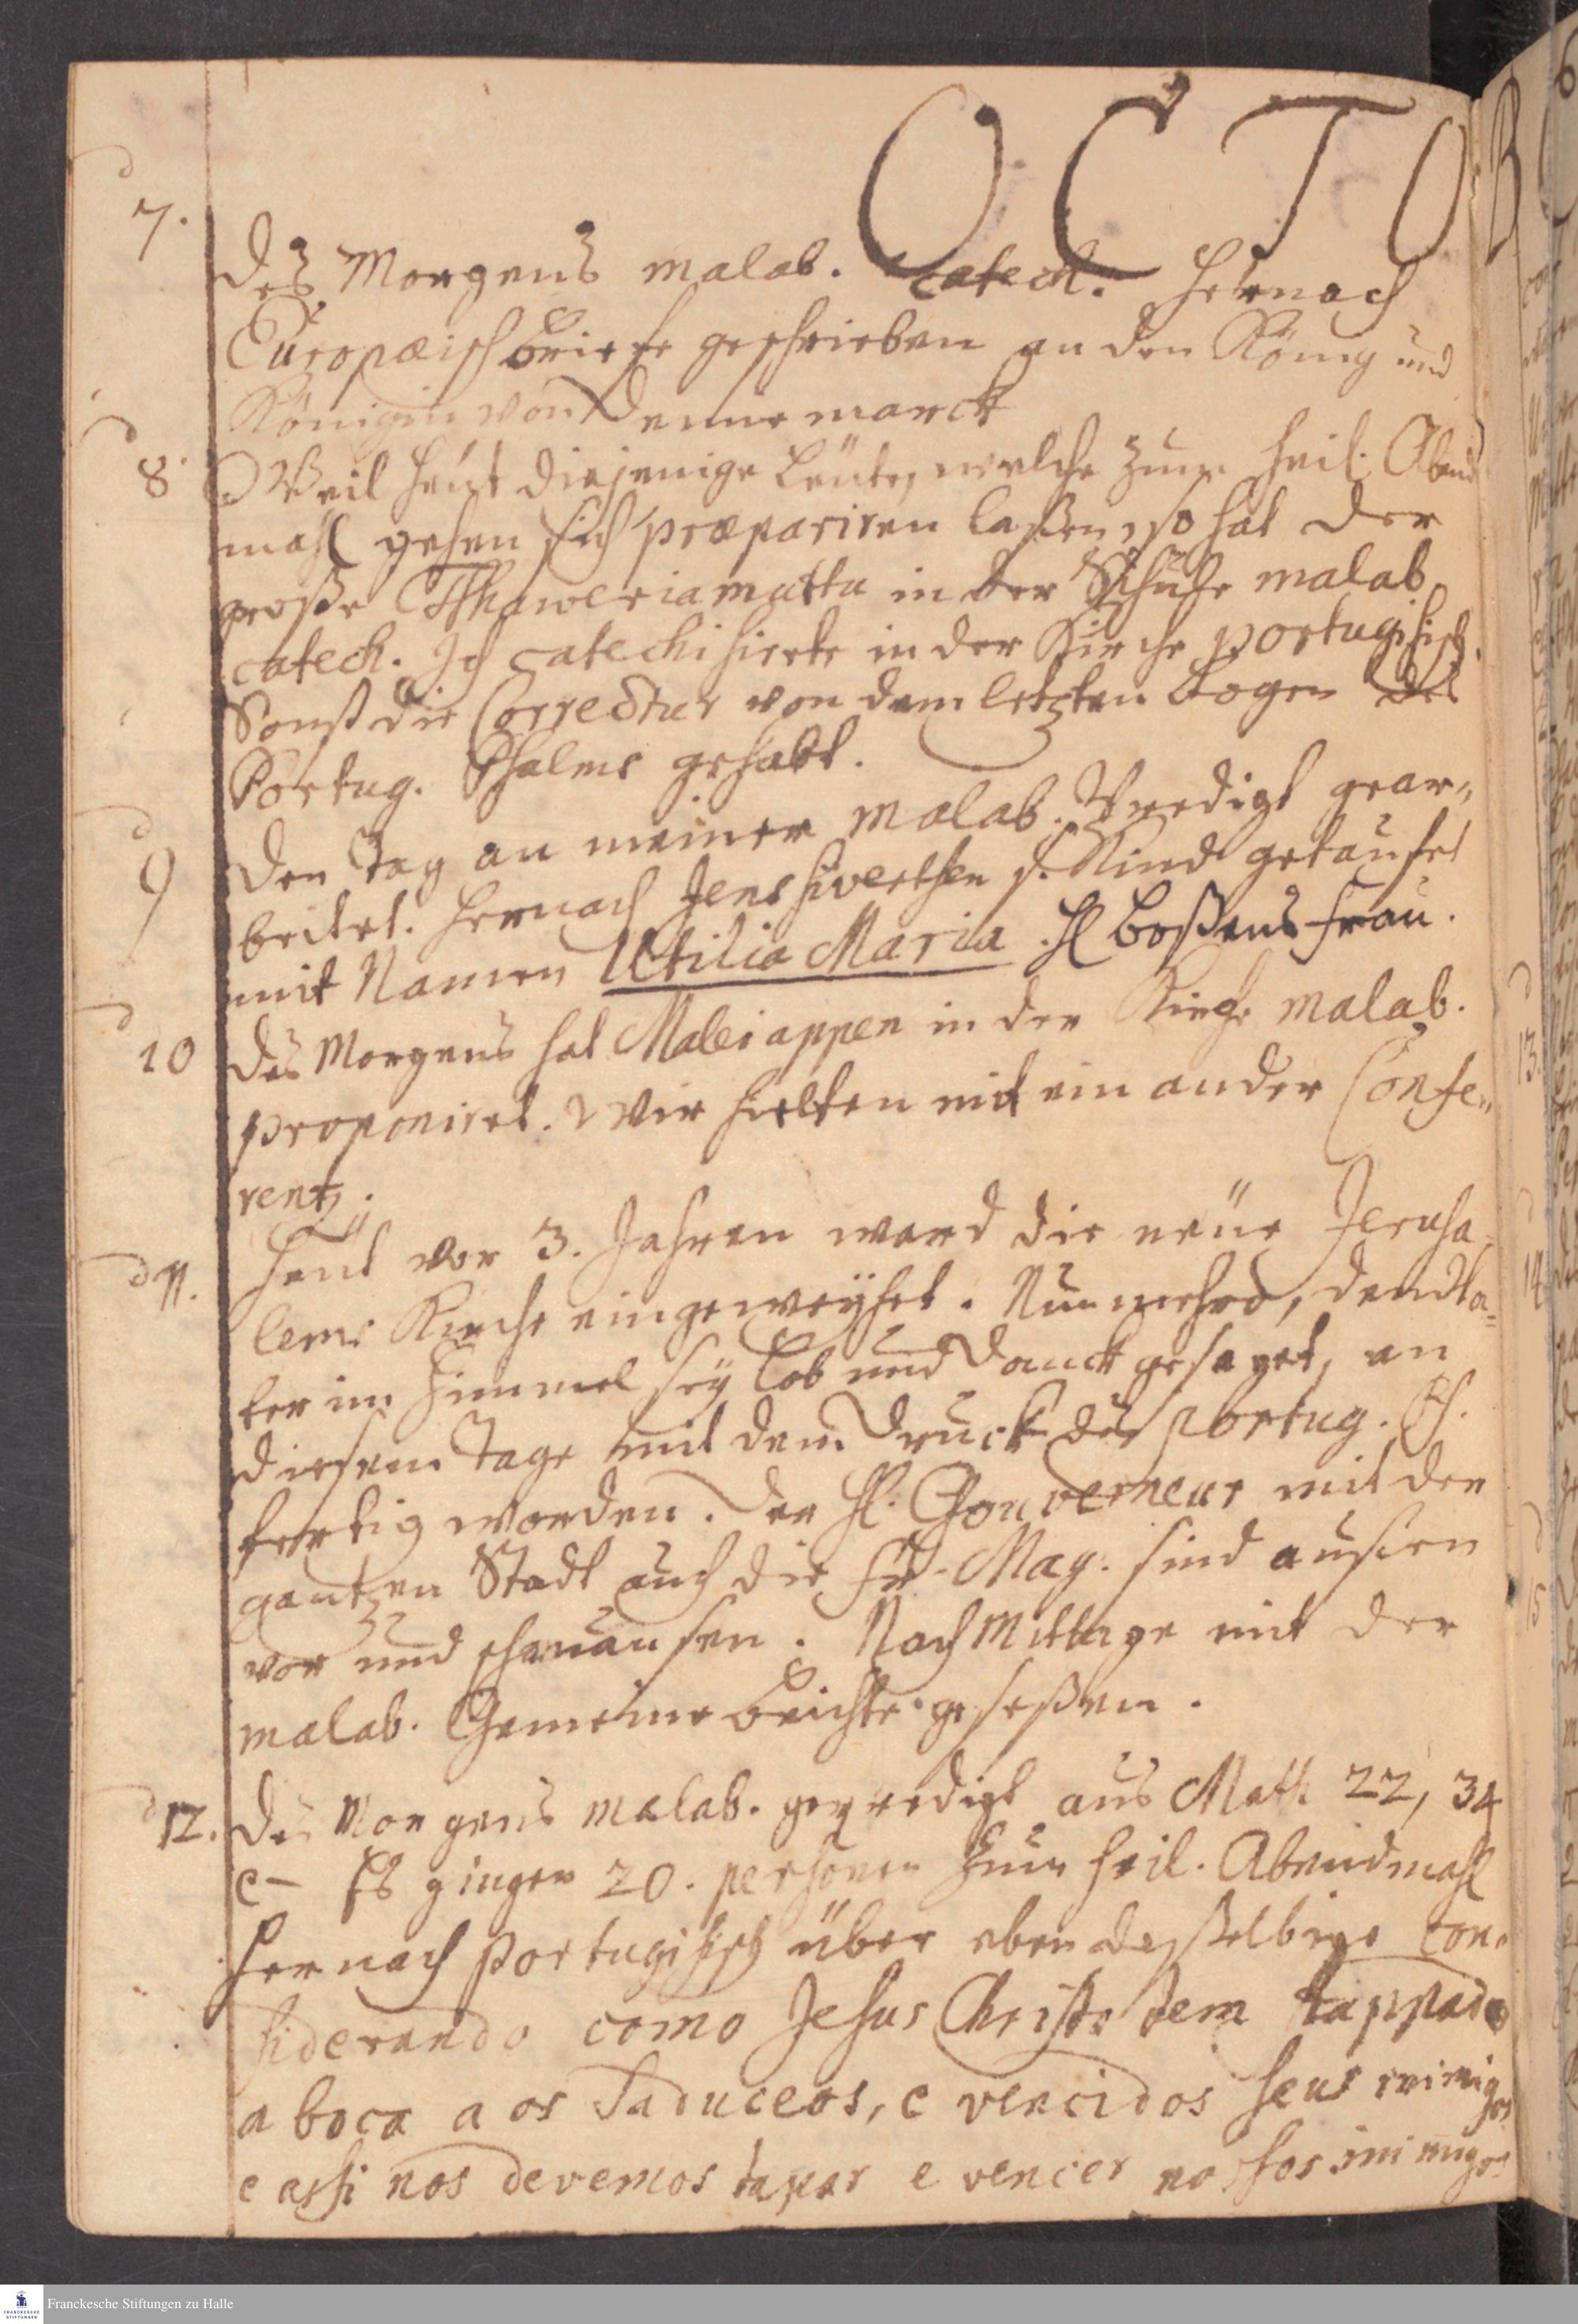 OCTO
d 7. Des Morgens malab. catech. Hernach
Europæisch briefe geschrieben an den König und
Königin von Dennemarck
d 8. Weil heut diejenige Leute, welche zum heil. Abend
mahl gehen sich præpariren laßen, so hat der
große in der Schule malab.
catech. Ich catechisirte in der Kirche portugisisch.
Sonst die Correctur von dem letzten Bogen des
Portug. Psalms gehabt.
d 9 Den Tag an meiner malab. Predigt gear„
beitet. Hernach Jens Sivertsen s. Kind getaufet
mit Namen Utilia Maria. H Boßens Frau.
d 10 Des Morgens hat Maleiappen in der Kirche malab.
proponiret. Wir hielten mit ein ander Confe„
rentz.
d 11. Heut vor 3. Jahren ward die neue Jerusa„
lems Kirche eingeweyhet. Nunmehro, dem Va„
ter im Himmel sey Lob und Danck gesaget, an
diesem Tage mit dem Druck des portug. Ps.
fertig worden. Der H. Gouverneur mit der
gantzen Stadt auch die Mag. sind außen
vor und schmausen. Nach Mittage mit der
malab. Gemeine beichte geseßen.
d 12. Des Morgens malab. gepredigt aus Matth 22, 34
e– Es gingen 20. personen zum heil. Abendmahl
Hernach portugisisch über eben deßelbige con„
siderando como Jesus Christo tem tappado
a boca a os Saduceos, e vencidos seus inimigos
e assi nos devemos tapar e vencer nossos inimigos
13.
14
15